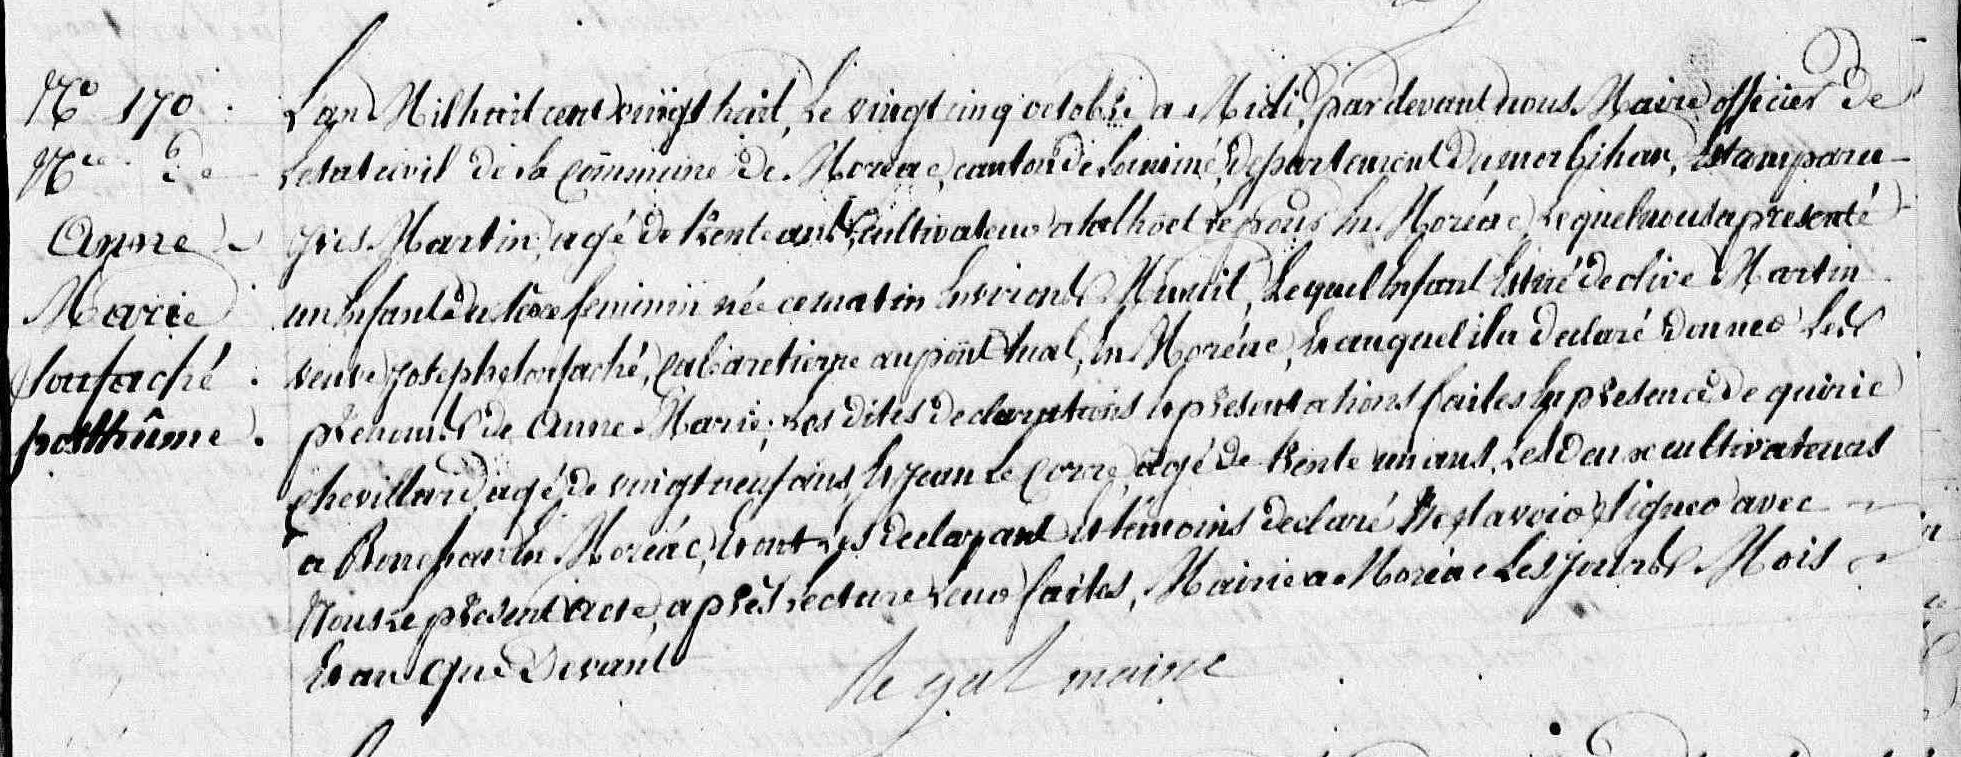 No 170.
Nce de
Anne
Marie
Loufaché
posthûme.
L'an Mil huit cent vingt huit, Le vingt cinq octobre a Midi, pardevant nous Maire officier de
Letat civil de la Commune de Moréac, canton de Locminé, departement du morbihan, Est comparu
yves Martin, agé de trente ans, cultivateur a talhoet En Moréac, Lequel nous a presenté
un Enfant du sexe feminin née ce matin Environ Minuit, Lequel Enfant Est né de olive Martin
veuve joseph Loufaché, Cabaretierre au pont tual, En Moréac, Et auquel il a declaré donner Les
prenoms de Anne Marie; Les dites declarations Et presentations faites En presence de quiric
chevillard, agé de vingt neuf ans, Et jean Le Corre, agé de trente un ans, Les deux cultivateurs
a En Moréac, Et ont Les declarant Et témoins declaré Ne savoir signer avec
Nous Le present Acte, après Lecture Leur faites, Mairie a Moréac Les jours Mois
Et an Que Devant
le gal maire